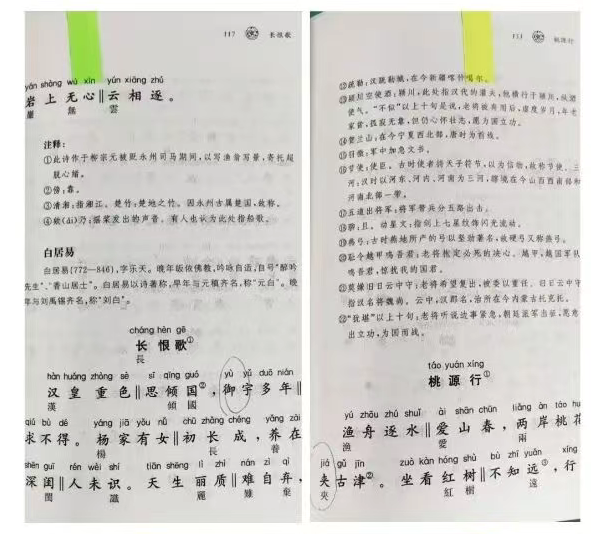 117 长恨歌
yán shàng wú xīn yún xiāng zhú
岩上无心‖云相逐。
巖 無 雲
注释:
①此诗作于柳宗元被贬永州司马期间,以写渔翁写景,寄托超
脱心绪。
②傍:靠。
③清湘:指湘江。楚竹:楚地之竹。因永州古属楚国,故称。
④欸(ǎi)乃:摇桨发出的声音。有人也认为此处指船歌。
白居易
白居易(772—846),字乐天。晚年皈依佛教,吟咏自适,自号“醉吟
先生”、“香山居士”。白居易以诗著称,早年与元稹齐名,称“元白”。晚
年与刘禹锡齐名,称“刘白”。
cháng hèn gē
长恨歌①
長
hàn huáng zhòng sè sī qīng guó yù yǔ duō nián
汉皇重色‖思倾国②,御宇多年‖
漢 傾國
qiú bù dé yáng jiā yǒu nǚ chū zhǎng chéng yǎng zài
求不得。杨家有女‖初长成,养在
楊 長 養
shēn guī rén wèi shí tiān shēng lì zhì nán zì qì
深闺‖人未识。天生丽质‖难自弃,
閨 識 麗 難 棄
113 桃源行
⑫疏勒:汉疏勒城,在今新疆喀什噶尔。
⑬颍川空使酒:颍川,此处指汉代的灌夫,他横行于颍川,纵酒
使气。“不似”以上十句是说,老将被弃用后,虚度岁月,年老
家贫,孤寂无靠,但仍心怀壮志,愿为国立功。
⑭贺兰山:在今宁夏西北部,唐时为前线。
⑮羽檄:军中加急文书。
⑯节使:使臣。古时使者持天子符节,以为信物,故称节使。三
河:汉时以河东、河内、河南为三河,辖境在今山西西南部和
河南北部一带。
⑰五道出将军:将军带兵分五路出击。
⑱聊:且。动星文:指剑上七星纹饰闪光流动。
⑲燕弓:古时燕地所产的弓以坚劲著名,故硬弓又称燕弓。
⑳耻令越甲鸣吾君:老将抱定必死的决心。越甲,越国军队
鸣吾君,惊扰我的国君。
㉑莫嫌旧日云中守:老将希望复出,被委以重任。旧日云中守
指汉名将魏尚。云中,汉郡名,治所在今内蒙古托克托。
㉒“犹堪”以上十句:老将听说边事紧急,朝廷派军出征,愿意
出立功,为国雨战。
táo yuán xíng
桃源行①
yú zhōu zhú shuǐ ài shān chūn liǎng àn táo hu
渔舟逐水‖爱山春,两岸桃花
漁 愛 兩
jiā gǔ jīn zuò kàn hóng shù bù zhī yuǎn xíng
夹古津②。坐看红树‖不知远③,行
夾 紅樹 遠